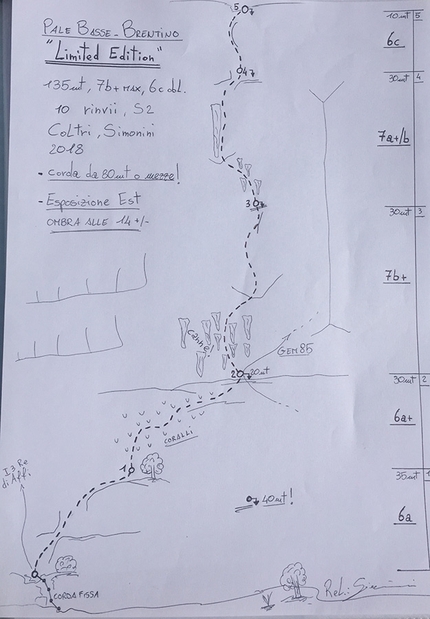 PALE BASSE - BRENTINO
"LIMITED EDITION"
135mt, 7b+ MAX, 6c obl.
10 rinvii, S2
Coltri, Simonini
2018
- corda da 80mt o mezze!
- Esposizione Est
OMBRA ALLE 14 +/-
5
4
3
2 20mt
1
GEM85
canne
CORALLI
40mt!
I 3 Re
di Affi
CORDA FISSA
10mt 5
6c
30mt 4
7a+/b
30mt 3
7b+
30mt 2
6a+
35mt 1
6a